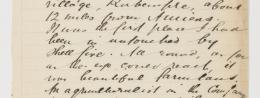 village, Rubempre, about
12 miles from Amiens.
It was the first place I had
been in untouched by
Shell fire. All round, as far
as the eye could reach, it
was beautiful farm land.
An agriculturalist in the Company